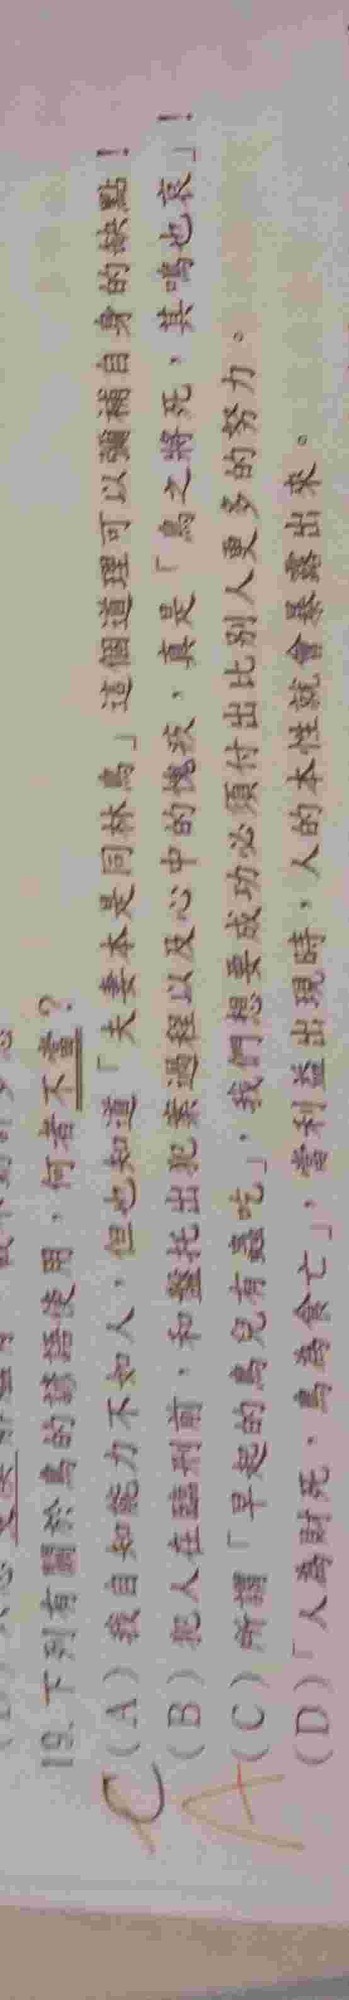 19. 下列有關於鳥的諺語使用，何者不當？
(A) 我自知能力不如人，但也知道「夫妻本是同林鳥」這個道理可以彌補自身的缺點！
(B) 犯人在臨刑前，和盤托出犯案過程以及心中的愧疚，真是「鳥之將死，其鳴也哀」！
(C) 所謂「早起的鳥兒有蟲吃」，我們想要成功必須付出比別人更多的努力。
(D)「人為財死，鳥為食亡」，當利益出現時，人的本性就會暴露出來。
C
A